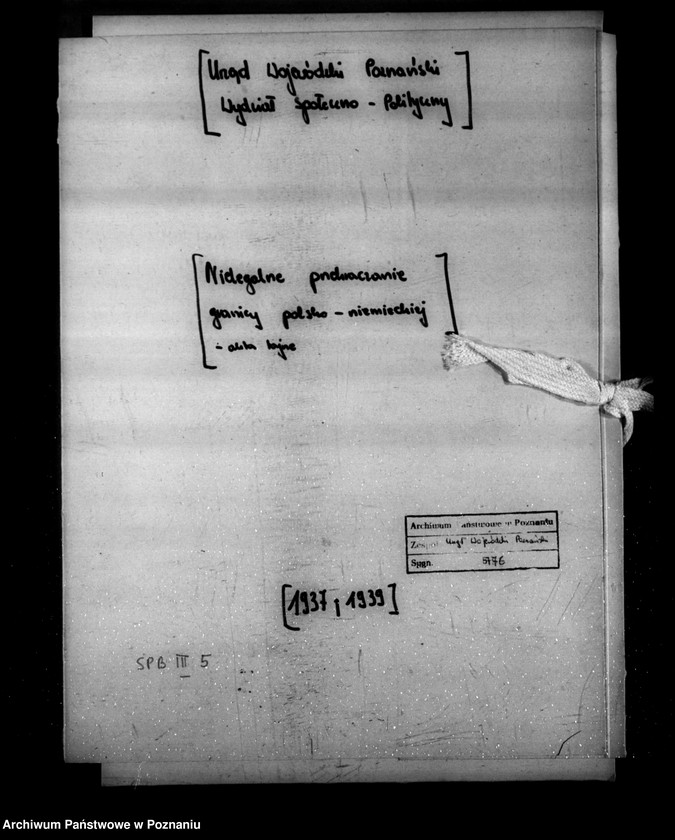 [Urząd Wojewódzki Poznański
Wydział Społeczno - Polityczny]
[Nielegalne przekraczanie
granicy polsko - niemieckiej
- akta tajne
Archiwum Państwowe w Poznaniu
Zespół Urząd Wojewódzki Poznański
Sygn. 5776
[1937 i 1939]
SPB III 5
Archiwum Państwowe w Poznaniu